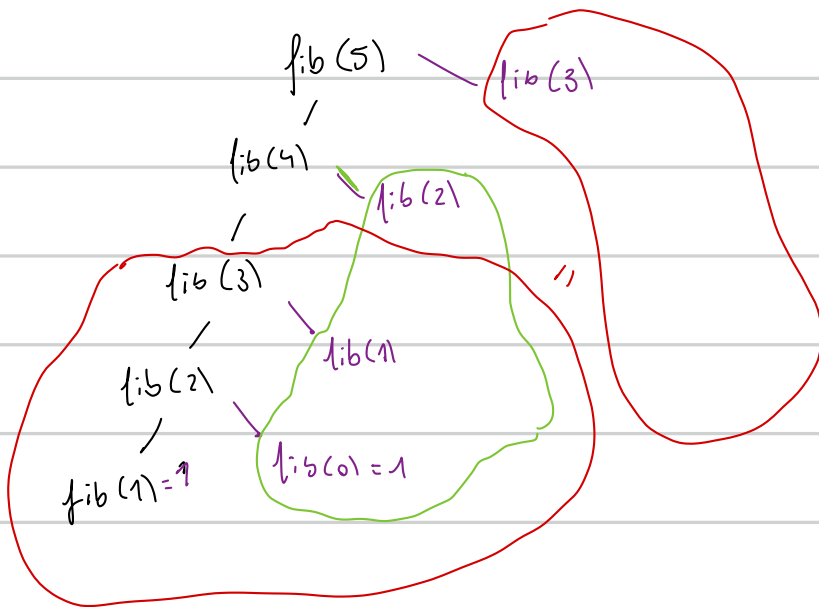 fib(5)
fib(3)
fib(4)
fib(2)
fib(3)
fib(1)
fib(2)
fib(0)=1
fib(1)=1